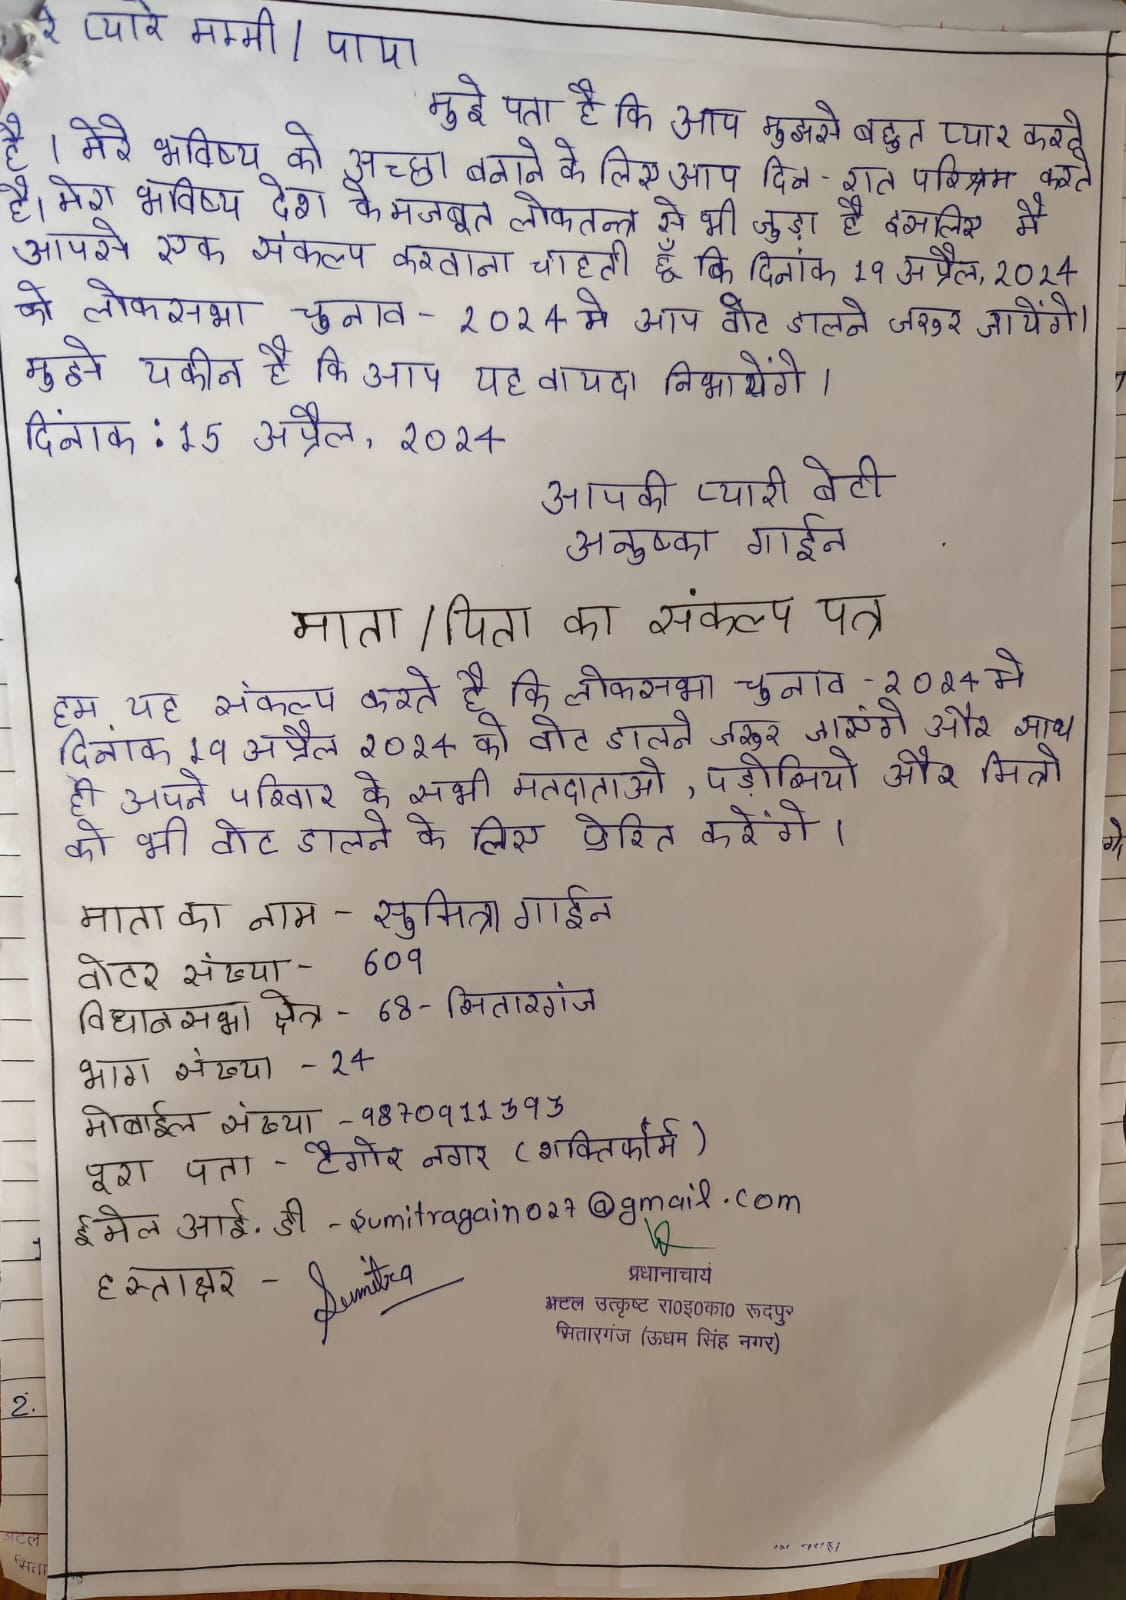 रे प्यारे मम्मी / पापा
मुझे पता है कि आप मुझसे बहुत प्यार करते
है । मेरे भविष्य को अच्छा बनाने के लिए आप दिन - रात परिश्रम करते
है। मेरा भविष्य देश के मजबूत लोकतन्त्र से भी जुड़ा है इसलिए मै
आपसे एक संकल्प करवाना चाहती हूँ कि दिनांक 19 अप्रैल, 2024
को लोकसभा चुनाव - 2024 मे आप वोट डालने जरूर जायेंगे।
मुझे यकीन है कि आप यह वायदा निभायेंगे ।
दिंनाक : 15 अप्रैल, 2024
आपकी प्यारी बेटी
अनुष्का गाईन
माता / पिता का संकल्प पत्र
हम यह संकल्प करते है कि लोकसभा चुनाव - 2024 मे
दिनांक 19 अप्रैल 2024 को वोट डालने जरूर जाएंगे और साथ
ही अपने परिवार के सभी मतदाताओ , पड़ोसियो और मित्रो
को भी वोट डालने के लिए प्रेरित करेंगे ।
माता का नाम - सुमित्रा गाईन
वोटर संख्या - 609
विधानसभा क्षेत्र - 68 - सितारगंज
भाग संख्या - 24
मोबाईल संख्या - 9870911393
पूरा पता - टैगोर नगर ( शक्तिफार्म )
ईमेल आई. डी - sumitragain027@gmail.com
हस्ताक्षर - Sumitra
प्रधानाचार्य
अटल उत्कृष्ट रा०इ०का० रूदपुर
सितारगंज (ऊधम सिंह नगर)
2.
अटल
सिता